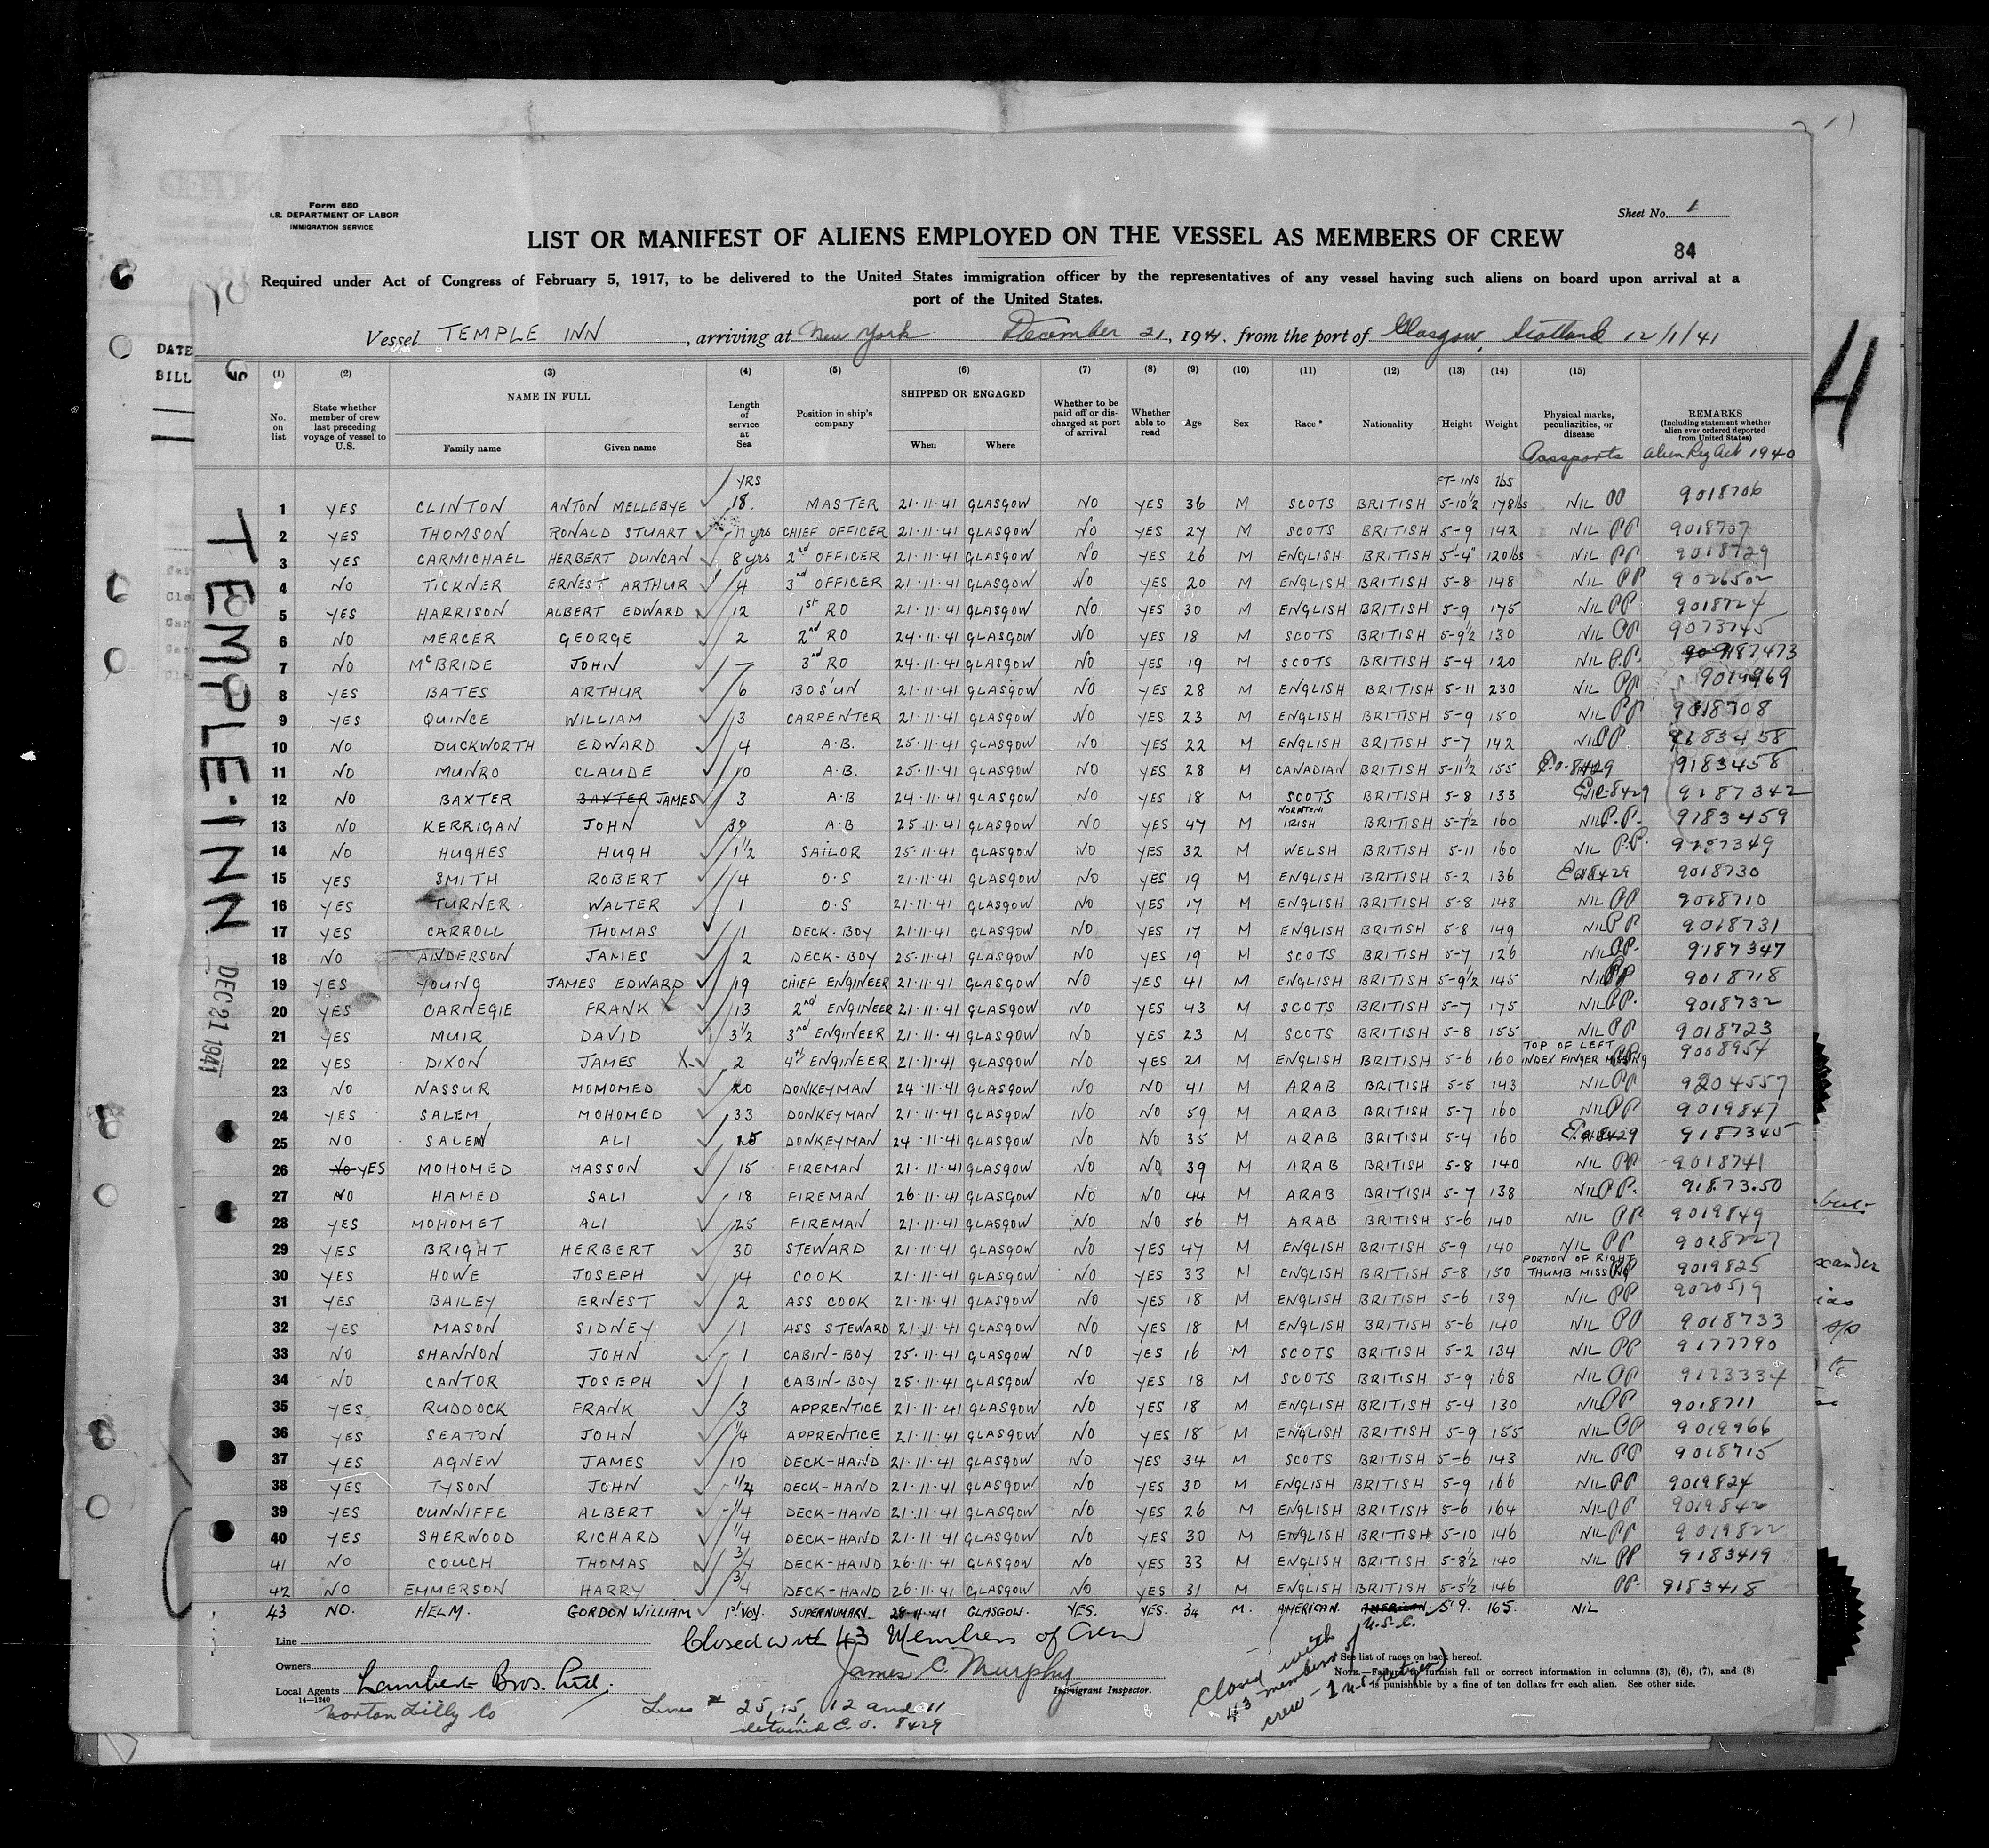 Form 680
U.S. DEPARTMENT OF LABOR
IMMIGRATION SERVICE
Sheet No. 1
LIST OR MANIFEST OF ALIENS EMPLOYED ON THE VESSEL AS MEMBERS OF CREW
84
Required under Act of Congress of February 5, 1917, to be delivered to the United States immigration officer by the representatives of any vessel having such aliens on board upon arrival at a
port of the United States.
Vessel TEMPLE INN, arriving at New York December 21, 1941. from the port of Glasgow, Scotland 12/1/41
4
DATE
BILL
TEMPLE·INN DEC 21 1941
(1) (2) (3) (4) (5) (6) (7) (8) (9) (10) (11) (12) (13) (14) (15)
No. on list
State whether member of crew last preceding voyage of vessel to U.S.
NAME IN FULL
Family name
Given name
Length of service at Sea
Position in ship's company
SHIPPED OR ENGAGED
When
Where
Whether to be paid off or discharged at port of arrival
Whether able to read
Age
Sex
Race*
Nationality
Height
Weight
Physical marks, peculiarities, or disease
Passports
REMARKS
(Including statement whether alien ever ordered deported from United States)
Alien Reg Act 1940
YRS FT-INS lbs
1 YES CLINTON ANTON MELLEBYE 18. MASTER 21·11·41 GLASGOW NO YES 36 M SCOTS BRITISH 5-10½ 178lbs NIL PP 9018706
2 YES THOMSON RONALD STUART 11 yrs CHIEF OFFICER 21·11·41 GLASGOW NO YES 27 M SCOTS BRITISH 5-9 142 NIL PP 9018707
3 YES CARMICHAEL HERBERT DUNCAN 8 yrs 2nd OFFICER 21·11·41 GLASGOW NO YES 26 M ENGLISH BRITISH 5-4" 120lbs NIL PP 9018729
4 NO TICKNER ERNEST ARTHUR 4 3rd OFFICER 21·11·41 GLASGOW NO YES 20 M ENGLISH BRITISH 5-8 148 NIL PP 9026502
5 YES HARRISON ALBERT EDWARD 12 1st RO 21·11·41 GLASGOW NO YES 30 M ENGLISH BRITISH 5-9 175 NIL PP 9018724
6 NO MERCER GEORGE 2 2nd RO 24·11·41 GLASGOW NO YES 18 M SCOTS BRITISH 5-9½ 130 NIL PP 9073745
7 NO McBRIDE JOHN — 3rd RO 24·11·41 GLASGOW NO YES 19 M SCOTS BRITISH 5-4 120 NIL P.P. 9187473
8 YES BATES ARTHUR 6 BOS'UN 21·11·41 GLASGOW NO YES 28 M ENGLISH BRITISH 5-11 230 NIL PP 9019969
9 YES QUINCE WILLIAM 3 CARPENTER 21·11·41 GLASGOW NO YES 23 M ENGLISH BRITISH 5-9 150 NIL PP 9018708
10 NO DUCKWORTH EDWARD 4 A·B. 25·11·41 GLASGOW NO YES 22 M ENGLISH BRITISH 5-7 142 NIL PP 9183458
11 NO MUNRO CLAUDE 10 A·B. 25·11·41 GLASGOW NO YES 28 M CANADIAN BRITISH 5-11½ 155 E.O. 8429 9183458
12 NO BAXTER BAXTER JAMES 3 A·B 24·11·41 GLASGOW NO YES 18 M SCOTS BRITISH 5-8 133 E.O. 8429 9187342
13 NO KERRIGAN JOHN 30 A·B 25·11·41 GLASGOW NO YES 47 M IRISH BRITISH 5-7½ 160 NIL P.P. 9183459
14 NO HUGHES HUGH 1½ SAILOR 25·11·41 GLASGOW NO YES 32 M WELSH BRITISH 5-11 160 NIL P.P. 9187349
15 YES SMITH ROBERT 4 O·S 21·11·41 GLASGOW NO YES 19 M ENGLISH BRITISH 5-2 136 EO 8429 9018730
16 YES TURNER WALTER 1 O·S 21·11·41 GLASGOW NO YES 17 M ENGLISH BRITISH 5-8 148 NIL PP 9018710
17 YES CARROLL THOMAS 1 DECK-BOY 21·11·41 GLASGOW NO YES 17 M ENGLISH BRITISH 5-8 149 NIL PP 9018731
18 NO ANDERSON JAMES 2 DECK-BOY 25·11·41 GLASGOW NO YES 19 M SCOTS BRITISH 5-7 126 NIL PP. 9187347
19 YES YOUNG JAMES EDWARD 19 CHIEF ENGINEER 21·11·41 GLASGOW NO YES 41 M ENGLISH BRITISH 5-9½ 145 NIL PP 9018718
20 YES CARNEGIE FRANK 13 2nd ENGINEER 21·11·41 GLASGOW NO YES 43 M SCOTS BRITISH 5-7 175 NIL PP. 9018732
21 YES MUIR DAVID 3½ 3rd ENGINEER 21·11·41 GLASGOW NO YES 23 M SCOTS BRITISH 5-8 155 NIL PP 9018723
22 YES DIXON JAMES X 2 4th ENGINEER 21·11·41 GLASGOW NO YES 21 M ENGLISH BRITISH 5-6 160 TOP OF LEFT INDEX FINGER MISSING PP 9008954
23 NO NASSUR MOMOMED 20 DONKEYMAN 24·11·41 GLASGOW NO NO 41 M ARAB BRITISH 5-5 143 NIL PP 9204557
24 YES SALEM MOHOMED 33 DONKEYMAN 21·11·41 GLASGOW NO NO 59 M ARAB BRITISH 5-7 160 NIL PP 9019847
25 NO SALEM ALI 15 DONKEYMAN 24·11·41 GLASGOW NO NO 35 M ARAB BRITISH 5-4 160 E.O. 8429 9187345
26 NO YES MOHOMED MASSON 15 FIREMAN 21·11·41 GLASGOW NO NO 39 M ARAB BRITISH 5-8 140 NIL PP 9018741
27 NO HAMED SALI 18 FIREMAN 26·11·41 GLASGOW NO NO 44 M ARAB BRITISH 5-7 138 NIL PP. 9187350
28 YES MOHOMET ALI 25 FIREMAN 21·11·41 GLASGOW NO NO 56 M ARAB BRITISH 5-6 140 NIL PP 9019849
29 YES BRIGHT HERBERT 30 STEWARD 21·11·41 GLASGOW NO YES 47 M ENGLISH BRITISH 5-9 140 NIL PP 9018727
30 YES HOWE JOSEPH 14 COOK 21·11·41 GLASGOW NO YES 33 M ENGLISH BRITISH 5-8 150 PORTION OF RIGHT THUMB MISSING PP 9019825
31 YES BAILEY ERNEST 2 ASS COOK 21·11·41 GLASGOW NO YES 18 M ENGLISH BRITISH 5-6 139 NIL PP 9020519
32 YES MASON SIDNEY 1 ASS STEWARD 21·11·41 GLASGOW NO YES 18 M ENGLISH BRITISH 5-6 140 NIL PP 9018733
33 NO SHANNON JOHN 1 CABIN-BOY 25·11·41 GLASGOW NO YES 16 M SCOTS BRITISH 5-2 134 NIL PP 9177790
34 NO CANTOR JOSEPH 1 CABIN-BOY 25·11·41 GLASGOW NO YES 18 M SCOTS BRITISH 5-9 168 NIL PP 9173334
35 YES RUDDOCK FRANK 3 APPRENTICE 21·11·41 GLASGOW NO YES 18 M ENGLISH BRITISH 5-4 130 NIL PP 9018711
36 YES SEATON JOHN ¼ APPRENTICE 21·11·41 GLASGOW NO YES 18 M ENGLISH BRITISH 5-9 155 NIL PP 9019966
37 YES AGNEW JAMES 10 DECK-HAND 21·11·41 GLASGOW NO YES 34 M SCOTS BRITISH 5-6 143 NIL PP 9018715
38 YES TYSON JOHN ¼ DECK-HAND 21·11·41 GLASGOW NO YES 30 M ENGLISH BRITISH 5-9 166 NIL PP 9019824
39 YES CUNNIFFE ALBERT ¼ DECK-HAND 21·11·41 GLASGOW NO YES 26 M ENGLISH BRITISH 5-6 164 NIL PP 9019842
40 YES SHERWOOD RICHARD ¼ DECK-HAND 21·11·41 GLASGOW NO YES 30 M ENGLISH BRITISH 5-10 146 NIL PP 9019822
41 NO COUCH THOMAS ¾ DECK-HAND 26·11·41 GLASGOW NO YES 33 M ENGLISH BRITISH 5-8½ 140 NIL PP 9183419
42 NO EMMERSON HARRY ¾ DECK-HAND 26·11·41 GLASGOW NO YES 31 M ENGLISH BRITISH 5-5½ 146 PP. 9183418
43 NO. HELM. GORDON WILLIAM 1st VOY. SUPERNUMARY 28·11·41 GLASGOW. YES. YES. 34 M. AMERICAN. AMERICAN. 5·9. 165. NIL
U.S.C.
Line
Closed with 43 Members of Crew
Owners
James C. Murphy
Immigrant Inspector.
Local Agents Lambert Bros. Ltd.
14—1240
Norton Lilly Co
Lines # 25, 15, 12 and 11
detained E.O. 8429
Closed with
43 members of
crew - 1 U.S. Citizen)
See list of races on back hereof.
NOTE.—Failure to furnish full or correct information in columns (3), (6), (7), and (8)
is punishable by a fine of ten dollars for each alien. See other side.